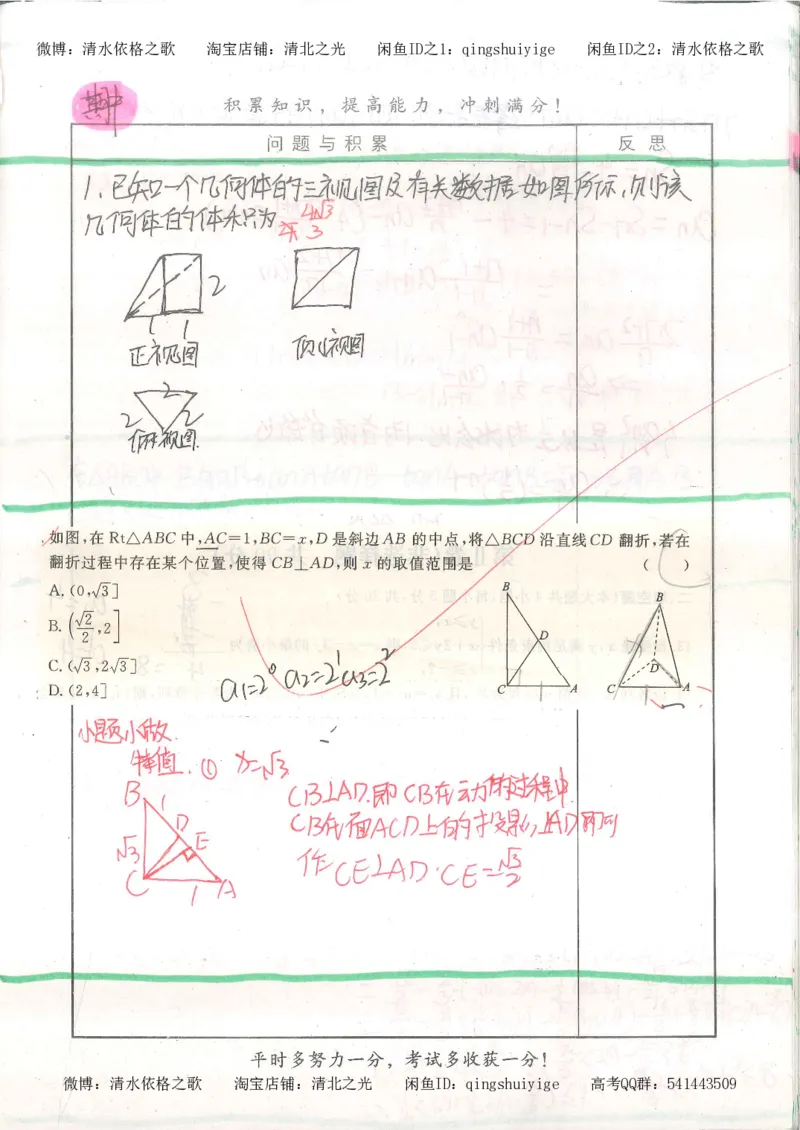 微博：清水依格之歌 淘宝店铺：清北之光 闲鱼ID之1：qingshuiyige 闲鱼ID之2：清水依格之歌
期中
积累知识，提高能力，冲刺满分！
问题与积累 反思
1.已知一个几何体的三视图及有关数据如图所标,则该
几何体的体积为 4√3
3
2
1 1
正视图 侧视图
2
2 2
俯视图
如图,在Rt△ABC中,AC=1,BC=x,D是斜边AB的中点,将△BCD沿直线CD翻折,若在
翻折过程中存在某个位置,使得CB⊥AD,则x的取值范围是 ( C )
A.(0,√3]
B.(√2/2,2]
C.(√3,2√3]
D.(2,4]
B D C A
B D C A
a1=2⁰ a2=2¹ a3=2²
小题小做.
特值. ① x=√3
B 1 D E √3 C 1 A
CB⊥AD.即CB在动的过程中
CB在面ACD上的投影⊥AD即可
作CE⊥AD.CE=√3/2
平时多努力一分，考试多收获一分！
微博：清水依格之歌 淘宝店铺：清北之光 闲鱼ID：qingshuiyige 高考QQ群：541443509